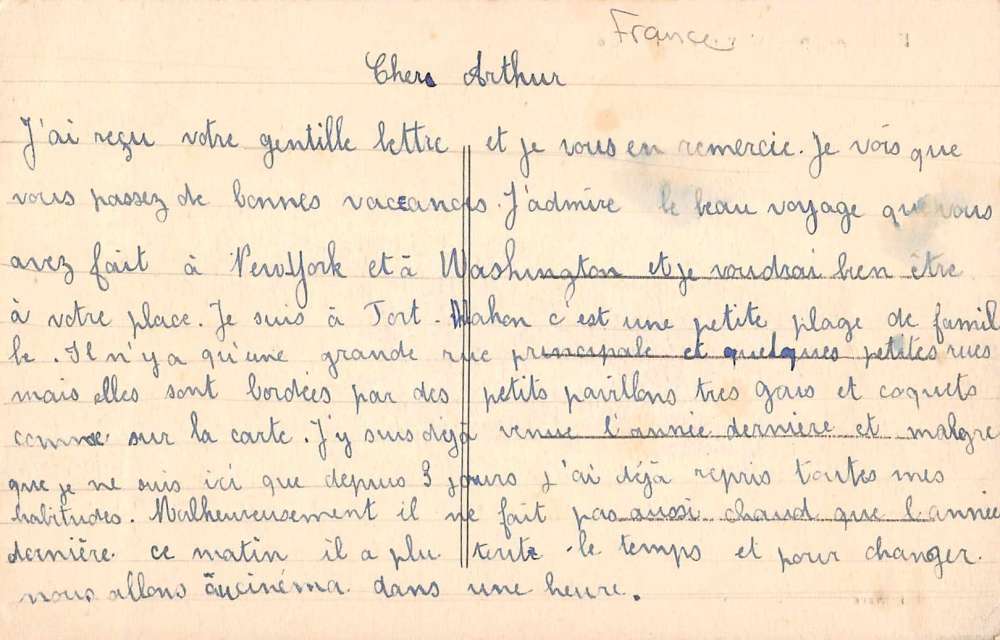 France
Cher Arthur
J'ai reçu votre gentille lettre et je vous en remercie. Je vois que
vous passez de bonnes vacances. J'admire le beau voyage que vous
avez fait à New York et à Washington et je voudrai bien être
à votre place. Je suis à Fort-Mahon c'est une petite plage de famil
le. Il n'y a qu'une grande rue principale et quelques petites rues
mais elles sont bordées par des petits pavillons tres gais et coquets
comme sur la carte. J'y suis déjà venue l'année dernière et malgre
que je ne suis ici que depuis 3 jours j'ai déjà repris toutes mes
habitudes. Malheureusement il ne fait pas aussi chaud que l'année
dernière. ce matin il a plu tout le temps et pour changer
nous allons au cinéma dans une heure.